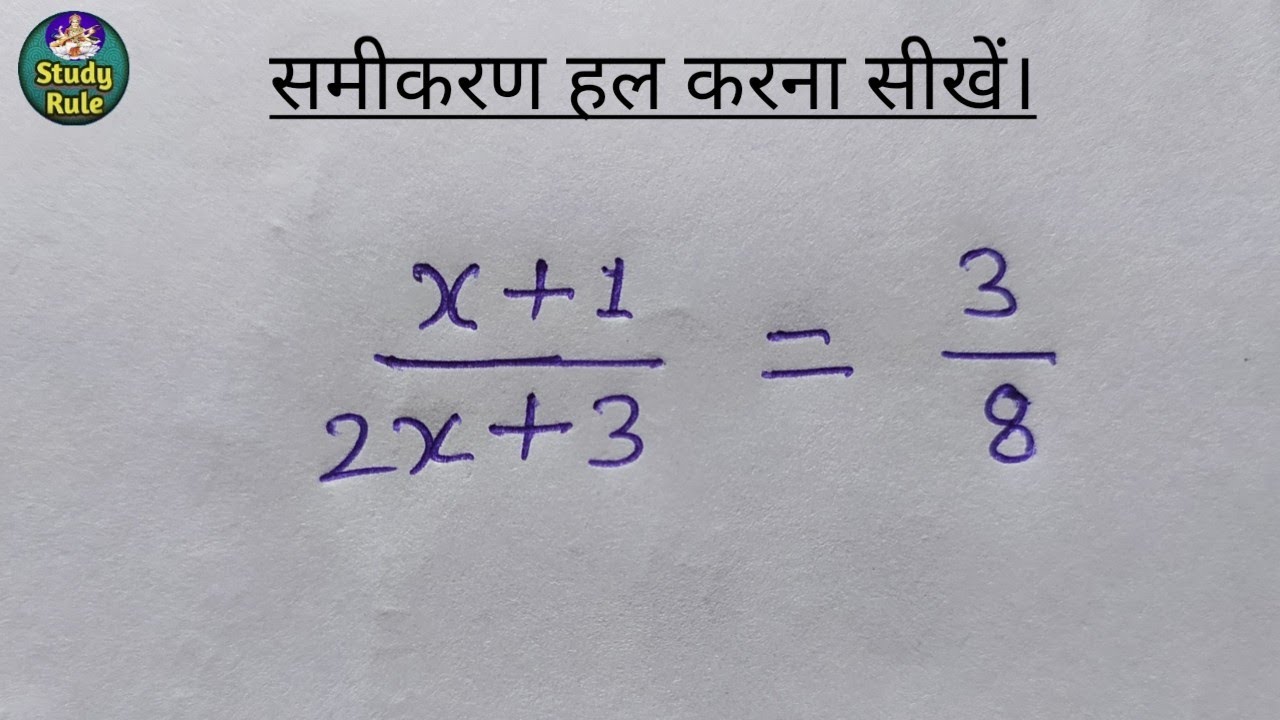 Study
Rule
समीकरण हल करना सीखें।
x+1
2x+3
=
3
8